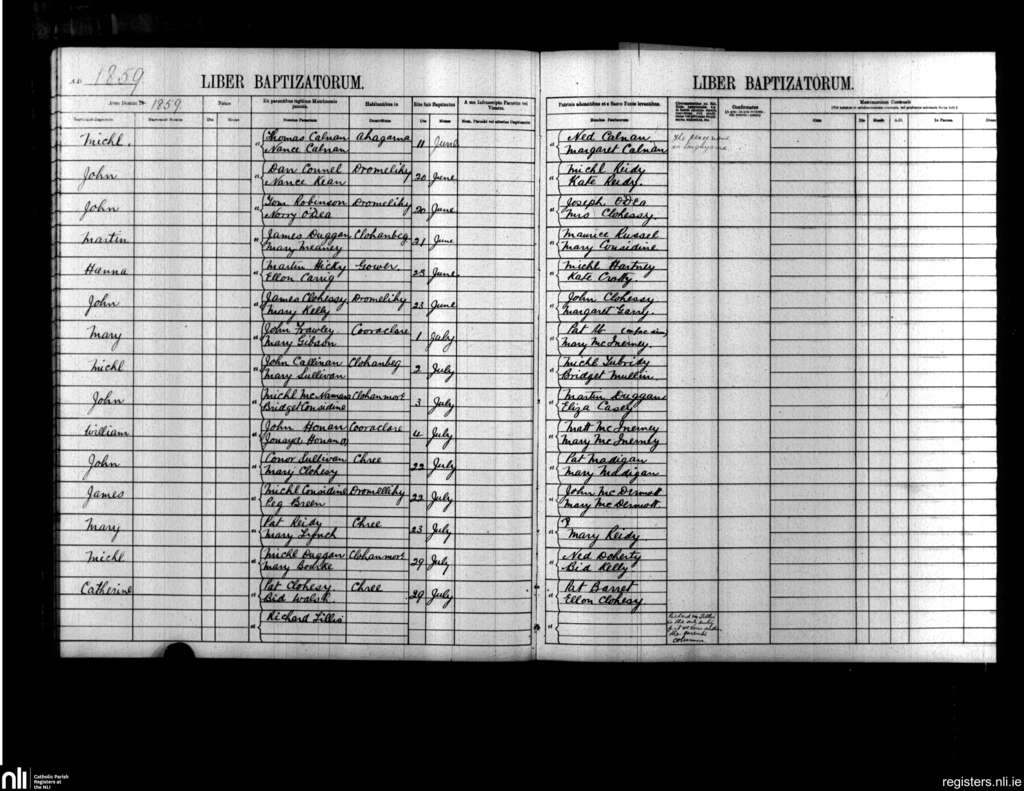 A.D. 1859
LIBER BAPTIZATORUM.
LIBER BAPTIZATORUM.
Anno Domini 18 1859
Natus
Ex parentibus legitimo Matrimonio junctis.
Habitantibus in
Rite fuit Baptizatus
A me infrascripto Parocho vel Vicario.
Patrinis adstantibus et e Sacro Fonte levantibus.
Confirmatus
Matrimonium Contraxit
Die
Mense
Die
Mense
Nomina Parentum
Nomina Patrinorum
Die
Month
A.D.
In Paroec.
Michl.
Thomas Calnan
Nance Calnan
11 June
Ned Calnan
Margaret Calnan
John
Dan Connel
Nance Kean
Dromelihy
20 June
Michl Reidy
Kate Reidy.
John
Tom Robinson
Norry O'Dea
Dromelihy
20 June
Joseph O'Dea
Mrs Clohessy.
Martin
James Duggan
Mary Meaney
Clohanbeg
21 June
Maurice Russel
Mary Considine
Hanna
Martin Hicky
Ellen Carrig
Gower.
23 June
Michl Hartney
Kate Crotty.
John
James Clohessy
Mary Kelly
Dromelihy
23 June
John Clohessy
Margaret Garry.
Mary
John Frawley
Mary Gibson
Cooraclare
1 July
Pat
Mary McInerney.
Michl
John Callinan
Mary Sullivan
Clohanbeg
2 July
Michl Tubridy
Bridget Mullin.
John
Michl McNamara
Bridget Considine
Clohanmore
3 July
Martin Duggan
Eliza Casey
William
John Honan
Honan
Cooraclare
4 July
Matt McInerney
Mary McInerney
John
Conor Sullivan
Mary Clohesy
Chree
22 July
Pat Madigan
Mary Madigan
James
Michl Considine
Peg Breen
Dromellihy
22 July
John McDermott
Mary McDermott.
Mary
Pat Reidy
Mary Lynch
Chree
23 July
?
Mary Reidy
Michl
Michl Duggan
Mary Bourke
Clohanmore
29 July
Ned Doherty
Bid Kelly
Catherine
Pat Clohesy
Bid Walsh
Chree
29 July
Pat Barret
Ellen Clohesy
Richard Lillis
the parents
column
nli
Catholic Parish
Registers at
the NLI
registers.nli.ie